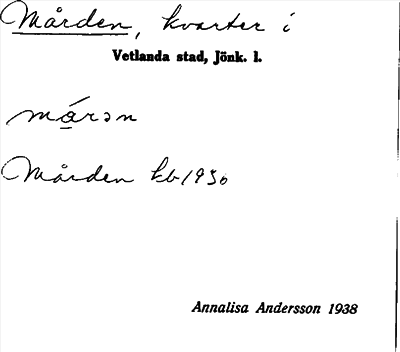 Mården, kvarter i
Vetlanda stad, Jönk. l.
má̱rən
Mården kb 1936
Annalisa Andersson 1938